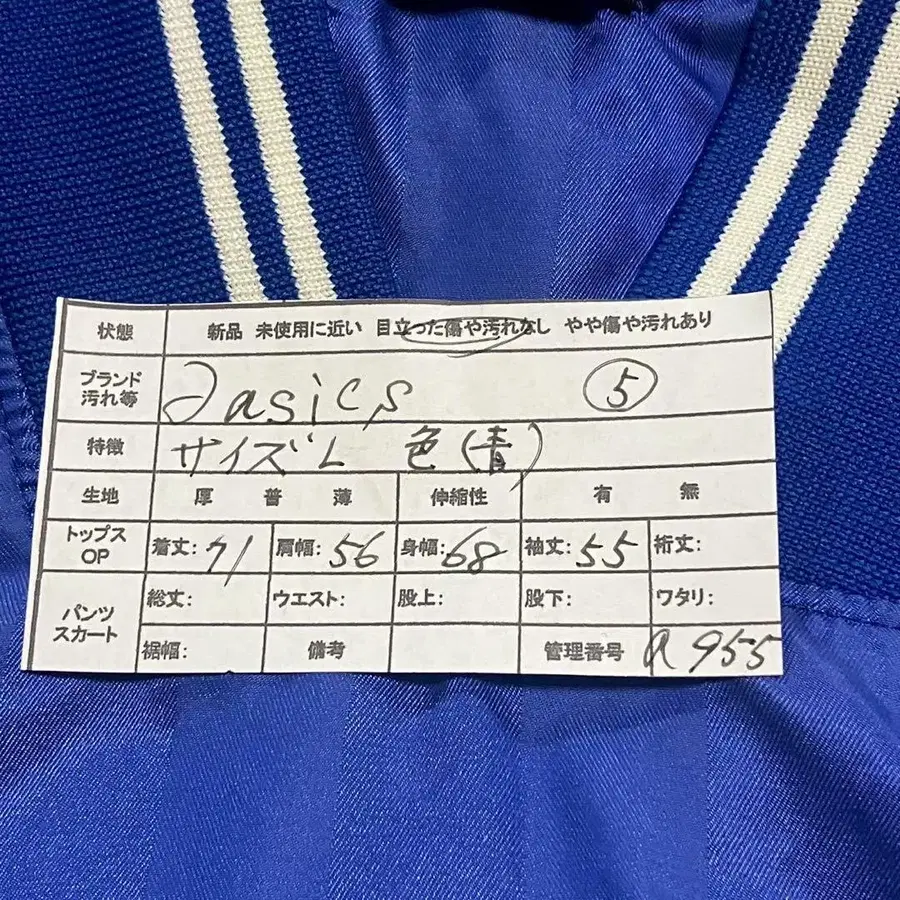 状態 新品 未使用に近い 目立った傷や汚れなし やや傷や汚れあり
ブランド 汚れ等 asics ⑤
特徴 サイズL 色(青)
生地 厚 普 薄 伸縮性 有 無
トップス OP 着丈:71 肩幅:56 身幅:68 袖丈:55 裄丈:
パンツ スカート 総丈: ウエスト: 股上: 股下: ワタリ:
裾幅: 備考 管理番号 a955